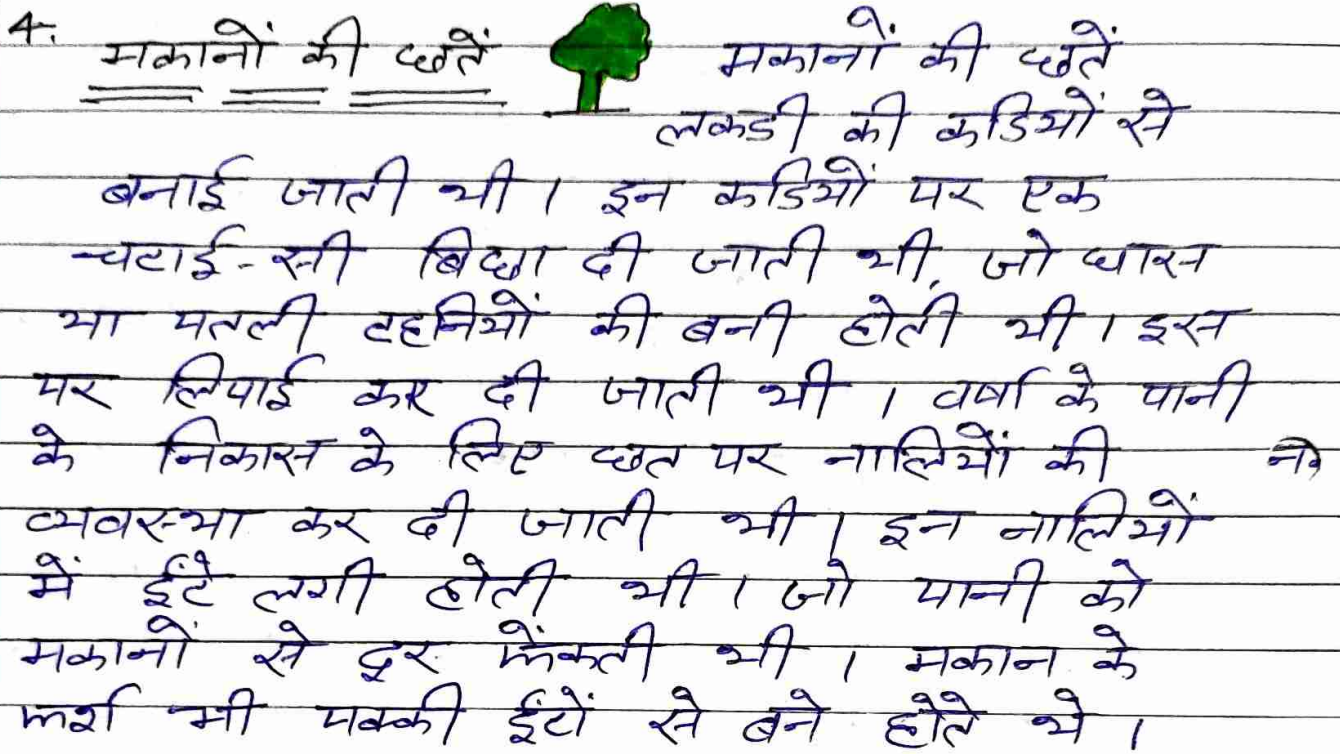 4. मकानों की छतें मकानों की छतें
लकडी की कडियों से
बनाई जाती थी । इन कडियों पर एक
चटाई-सी बिछा दी जाती थी, जो घास
या पतली टहनियों की बनी होती थी । इस
पर लिपाई कर दी जाती थी । वर्षा के पानी
के निकास के लिए छत पर नालियों की
व्यवस्था कर दी जाती थी । इन नालियों
में ईंटे लगी होती थी । जो पानी को
मकानों से दूर फेंकती थी । मकान के
फर्श भी पक्की ईंटों से बने होते थे ।